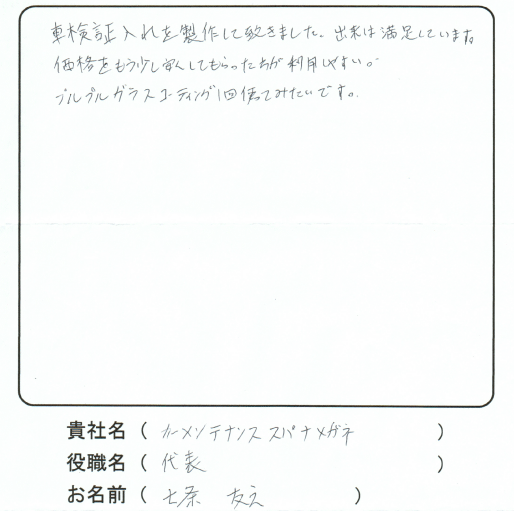 車検証入れを製作して頂きました。出来は満足しています。
価格をもう少し安くしてもらった方が利用しやすい。
プルプルガラスコーティング1回使ってみたいです。
貴社名 ( カーメンテナンス スパナメガネ )
役職名 ( 代表 )
お名前 ( 七条 )